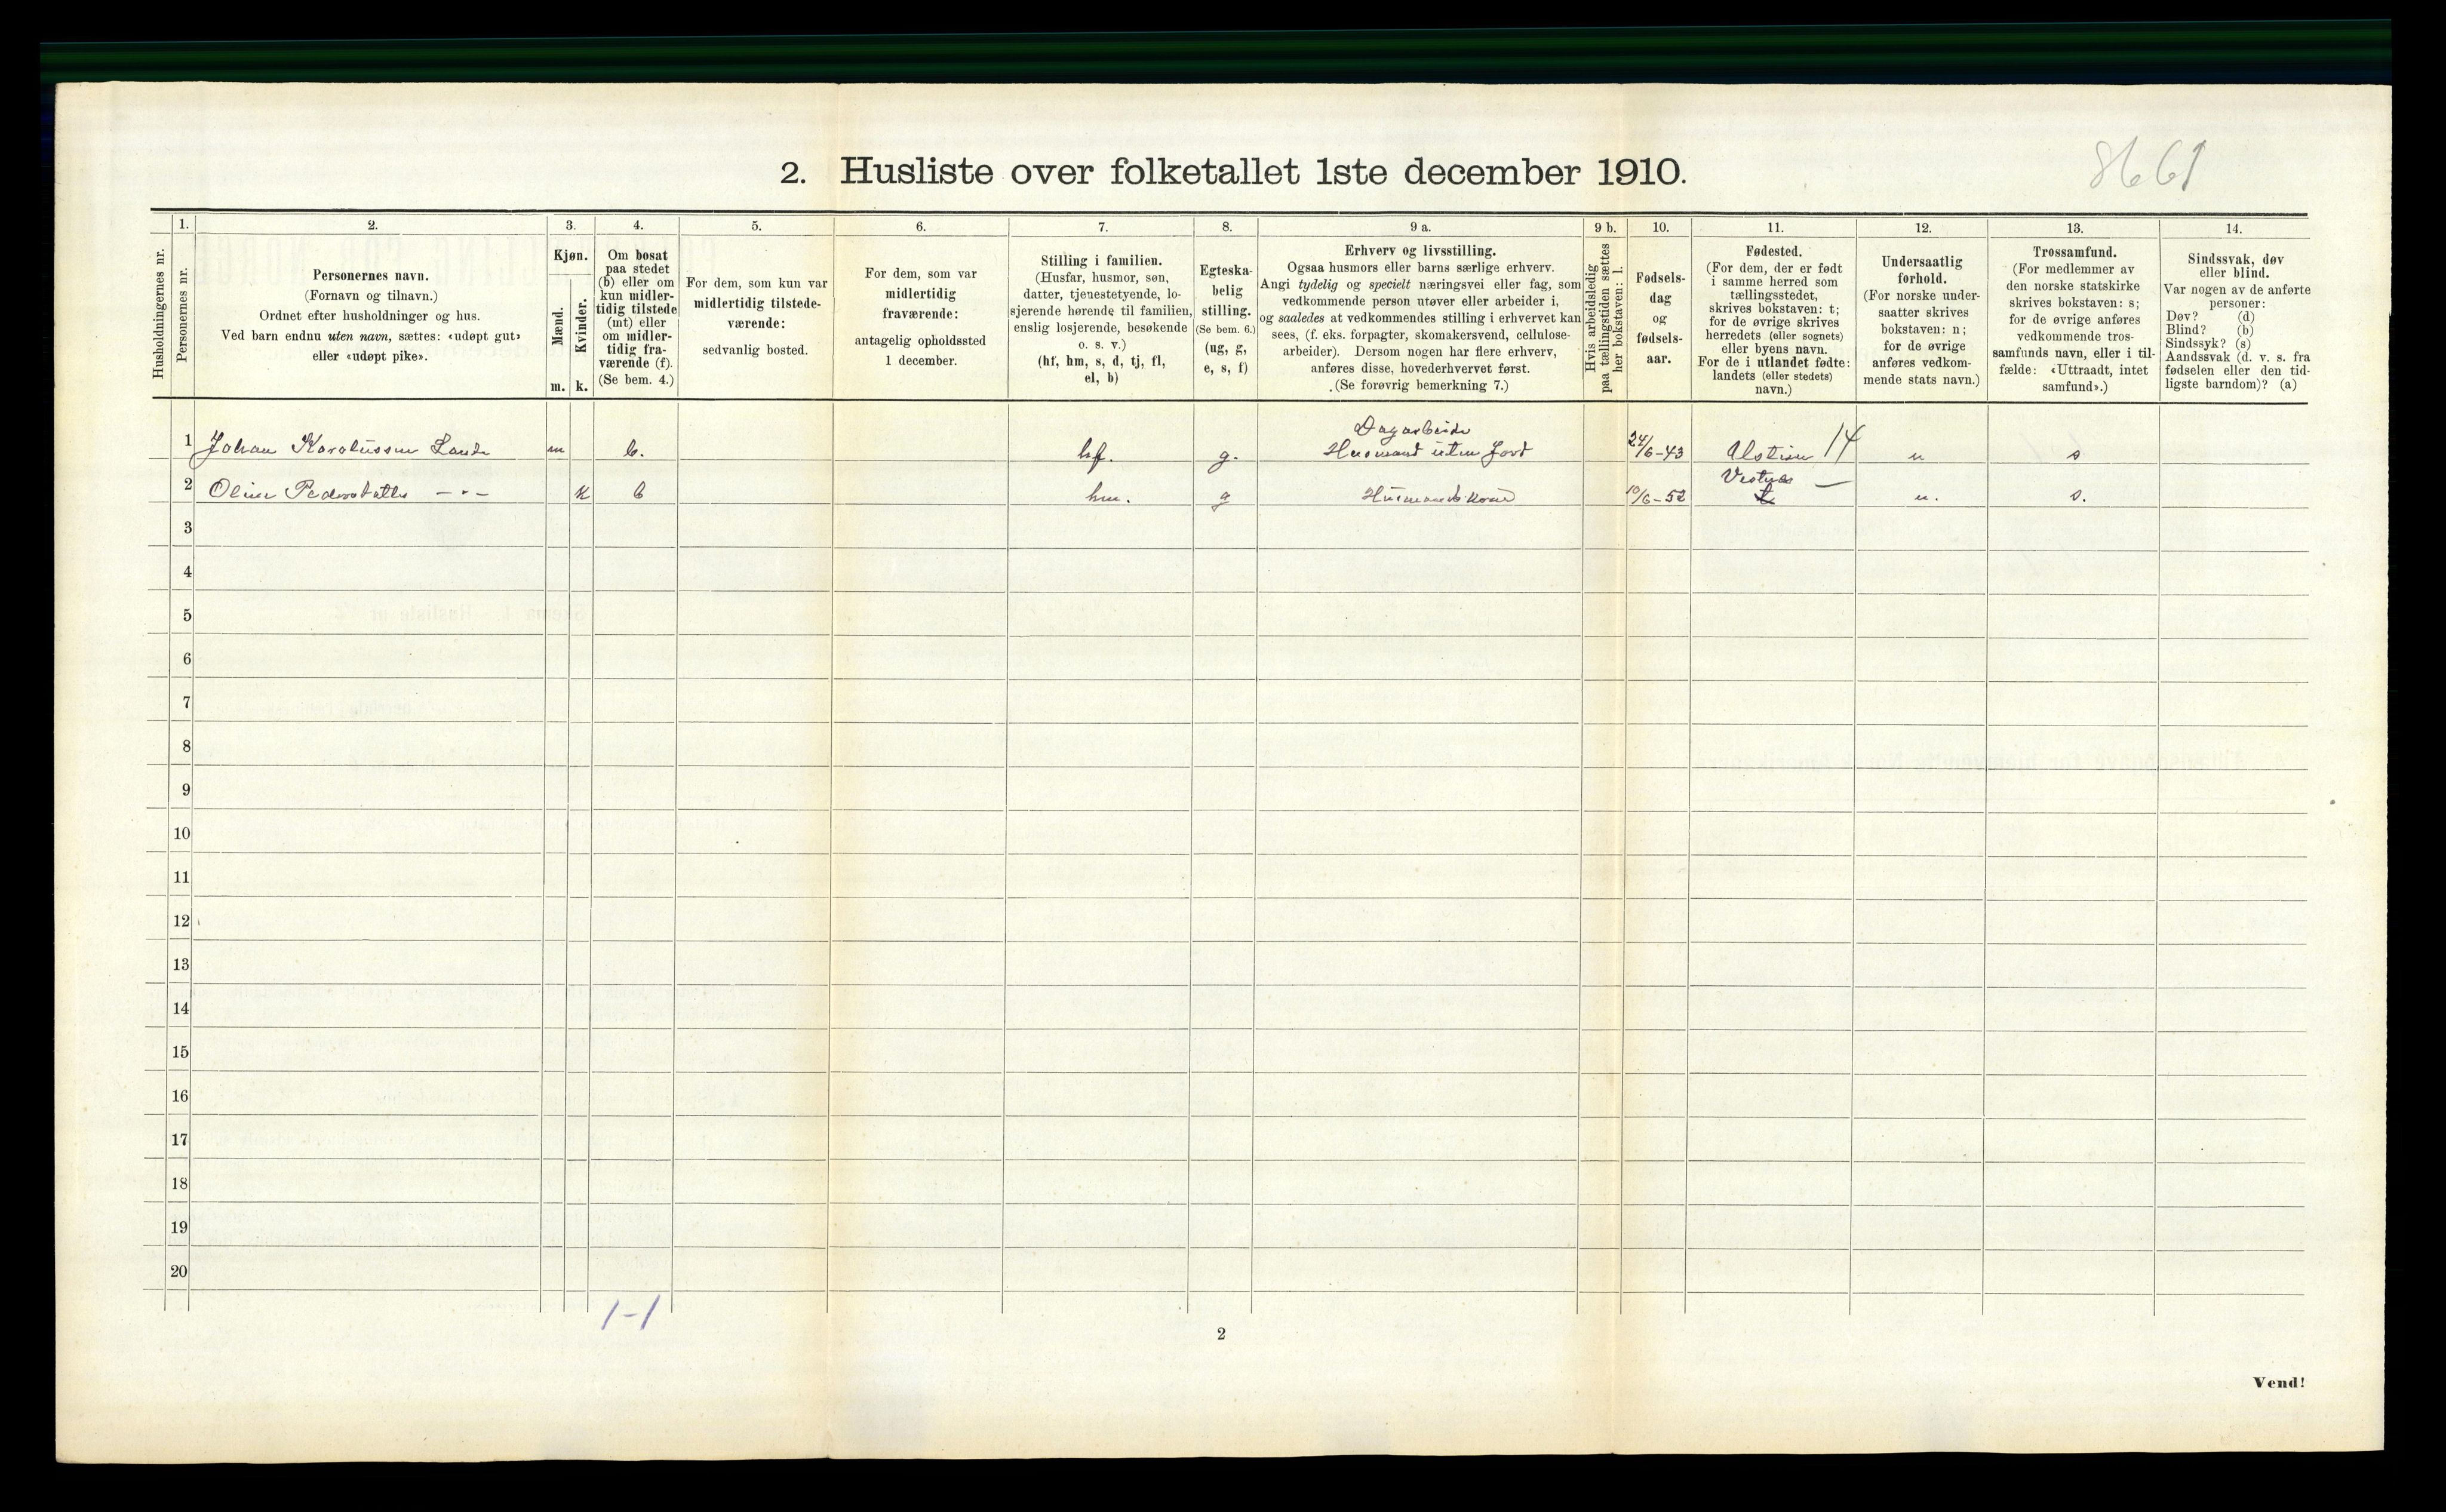 8661
2. Husliste over folketallet 1ste december 1910.
Husholdningernes nr.
1.
Personernes nr.
2.
Personernes navn.
(Fornavn og tilnavn.)
Ordnet efter husholdninger og hus.
Ved barn endnu uten navn, sættes: «udøpt gut»
eller «udøpt pike».
3.
Kjøn.
Mænd.
m.
Kvinder.
k.
4.
Om bosat
paa stedet
(b) eller om
kun midler-
tidig tilstede
(mt) eller
om midler-
tidig fra-
værende (f).
(Se bem. 4.)
5.
For dem, som kun var
midlertidig tilstede-
værende:
sedvanlig bosted.
6.
For dem, som var
midlertidig
fraværende:
antagelig opholdssted
1 december.
7.
Stilling i familien.
(Husfar, husmor, søn,
datter, tjenestetyende, lo-
sjerende hørende til familien,
enslig losjerende, besøkende
o. s. v.)
(hf, hm, s, d, tj, fl,
el, b)
8.
Egteska-
belig
stilling.
(Se bem. 6.)
(ug, g,
e, s, f)
9 a.
Erhverv og livsstilling.
Ogsaa husmors eller barns særlige erhverv.
Angi tydelig og specielt næringsvei eller fag, som
vedkommende person utøver eller arbeider i,
og saaledes at vedkommendes stilling i erhvervet kan
sees, (f. eks. forpagter, skomakersvend, cellulose-
arbeider). Dersom nogen har flere erhverv,
anføres disse, hovederhvervet først.
(Se forøvrig bemerkning 7.)
9 b.
Hvis arbeidsledig
paa tællingstiden sættes
her bokstaven: l.
10.
Fødsels-
dag
og
fødsels-
aar.
11.
Fødested.
(For dem, der er født
i samme herred som
tællingsstedet,
skrives bokstaven: t;
for de øvrige skrives
herredets (eller sognets)
eller byens navn.
For de i utlandet fødte:
landets (eller stedets)
navn.)
12.
Undersaatlig
forhold.
(For norske under-
saatter skrives
bokstaven: n;
for de øvrige
anføres vedkom-
mende stats navn.)
13.
Trossamfund.
(For medlemmer av
den norske statskirke
skrives bokstaven: s;
for de øvrige anføres
vedkommende tros-
samfunds navn, eller i til-
fælde: «Uttraadt, intet
samfund».)
14.
Sindssvak, døv
eller blind.
Var nogen av de anførte
personer:
Døv? (d)
Blind? (b)
Sindssyk? (s)
Aandssvak (d. v. s. fra
fødselen eller den tid-
ligste barndom)? (a)
Dagarbeide
1 Johan m b. hf. g. Husmand uten Jord 24/6-43 14 n s
Vestnes —
2 k b hm. g Husmandskone 10/6-52 t n. s.
3
4
5
6
7
8
9
10
11
12
13
14
15
16
17
18
19
20
1-1
2
Vend!